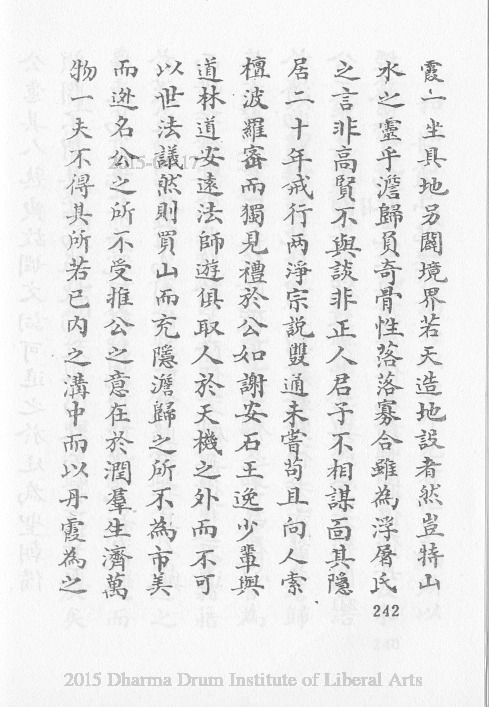 霞一坐具地另闢境界若天造地設者然豈特山
水之靈乎澹歸負奇骨性落落寡合雖為浮屠氏
之言非高賢不與談非正人君子不相謀面其隱
居二十年戒行两淨宗說雙通未嘗苟且向人索
檀波羅蜜而獨見禮於公如謝安石王逸少輩與
道林道安遠法師遊俱取人於天機之外而不可
以世法議然則買山而充隱澹歸之所不為市美
而逃名公之所不受推公之意在於潤羣生濟萬
物一夫不得其所若已內之溝中而以丹霞為之
242
2015 Dharma Drum Institute of Liberal Arts